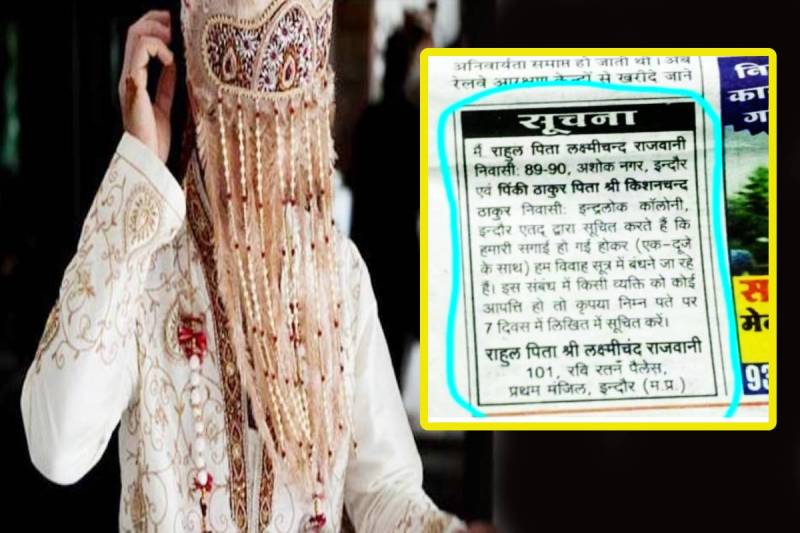 अनिवार्यता समाप्त हो जाती थी। अब
रेलवे आरक्षण केन्द्रों से खरीदे जाने
सूचना
मैं राहुल पिता लक्ष्मीचन्द राजवानी
निवासी: 89-90, अशोक नगर, इन्दौर
एवं पिंकी ठाकुर पिता श्री किशनचन्द
ठाकुर निवासी: इन्द्रलोक कॉलोनी,
इन्दौर एतद् द्वारा सूचित करते हैं कि
हमारी सगाई हो गई होकर (एक-दूजे
के साथ) हम विवाह सूत्र में बंधने जा रहे
हैं। इस संबंध में किसी व्यक्ति को कोई
आपत्ति हो तो कृपया निम्न पते पर
7 दिवस में लिखित में सूचित करें।
राहुल पिता श्री लक्ष्मीचंद राजवानी
101, रवि रतन पैलेस,
प्रथम मंजिल, इन्दौर (म.प्र.)